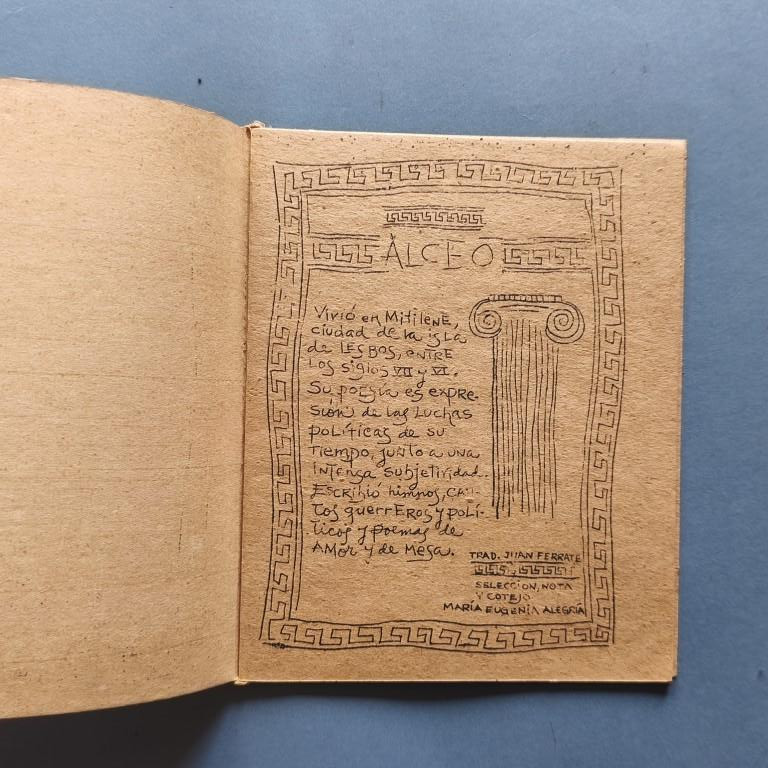 ALCEO
Vivió en Mitilene,
ciudad de la isla
de Lesbos, entre
los siglos VII y VI.
Su poesía es expre-
sión de las luchas
políticas de su
tiempo, junto a una
intensa subjetividad.
Escribió himnos, can-
tos guerreros y polí-
ticos y poemas de
amor y de mesa.
TRAD. JUAN FERRATE
SELECCION, NOTA
Y COTEJO
MARÍA EUGENIA ALEGRIA